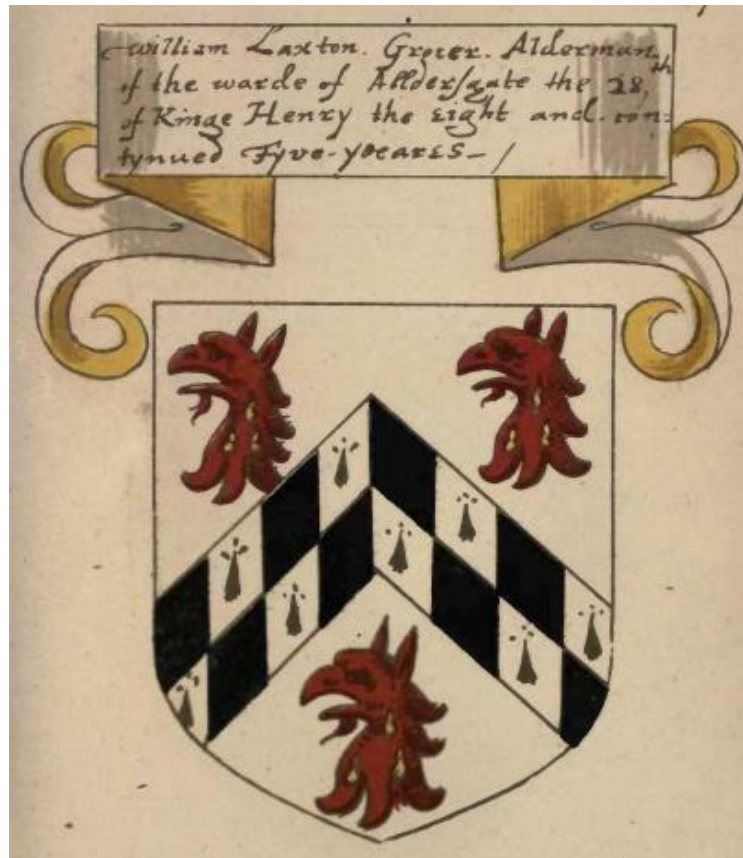 william Laxton. Grocer. Alderman.
of the warde of Alldersgate the 28th
of Kinge Henry the eight and. con:
tynued Fyve-yeares-/